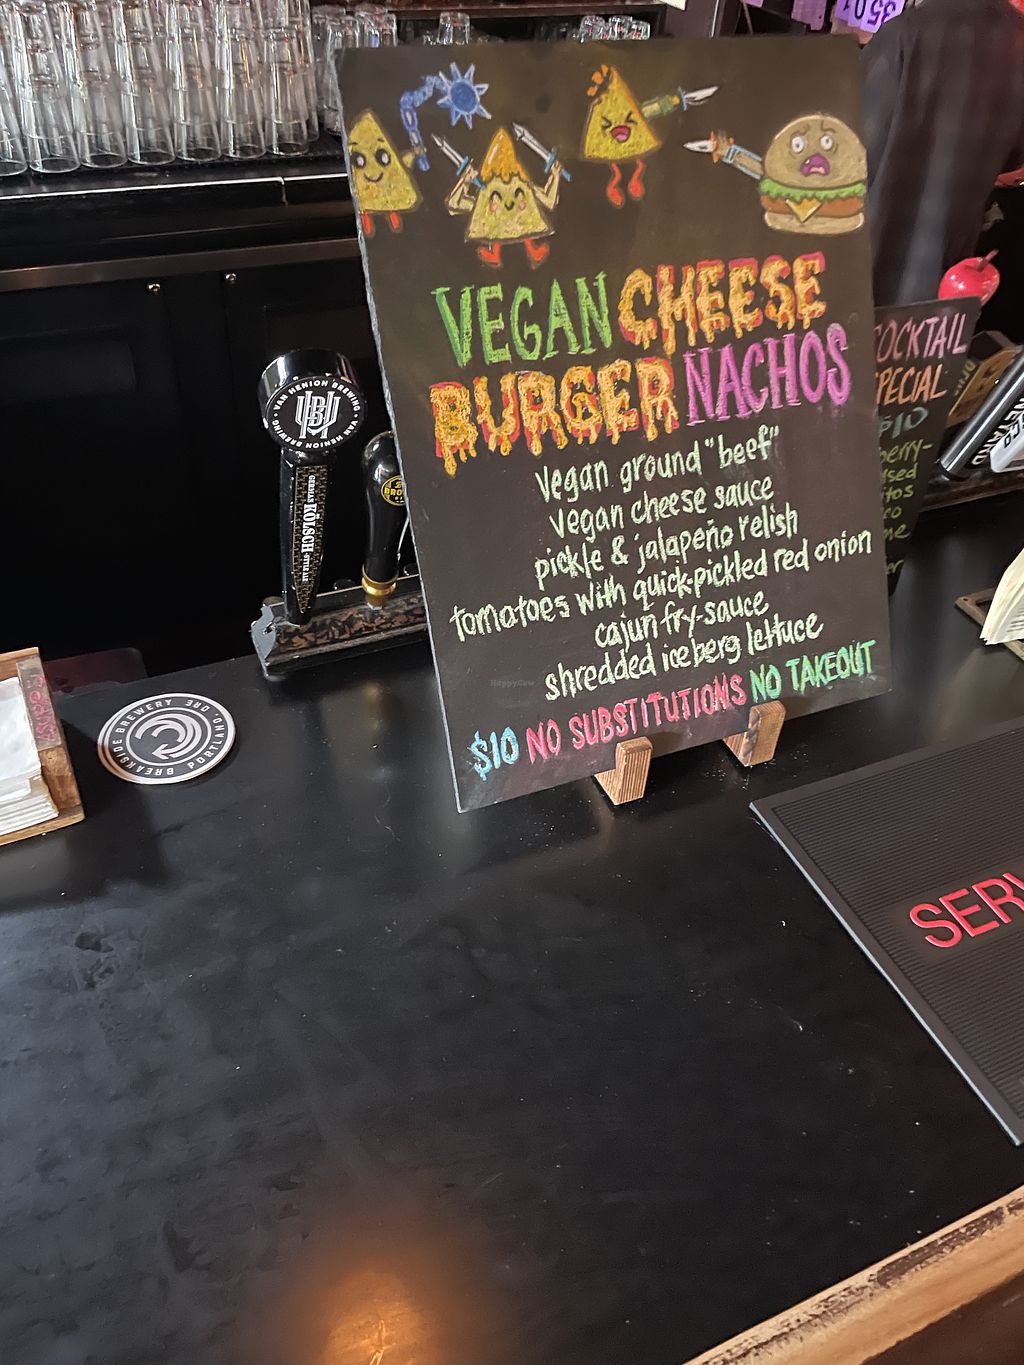 VEGAN CHEESE
BURGER NACHOS
vegan ground "beef"
vegan cheese sauce
pickle & jalapeño relish
tomatoes with quick-pickled red onion
cajun fry-sauce
shredded iceberg lettuce
$10 NO SUBSTITUTIONS NO TAKEOUT
VAN HENION BREWING · VAN HENION BREWING
VHB
GERMAN KÖLSCH STYLE ALE
BREAKSIDE BREWERY
PORTLAND, ORE
COCKTAIL
SPECIAL
$10
SERV
HappyCow